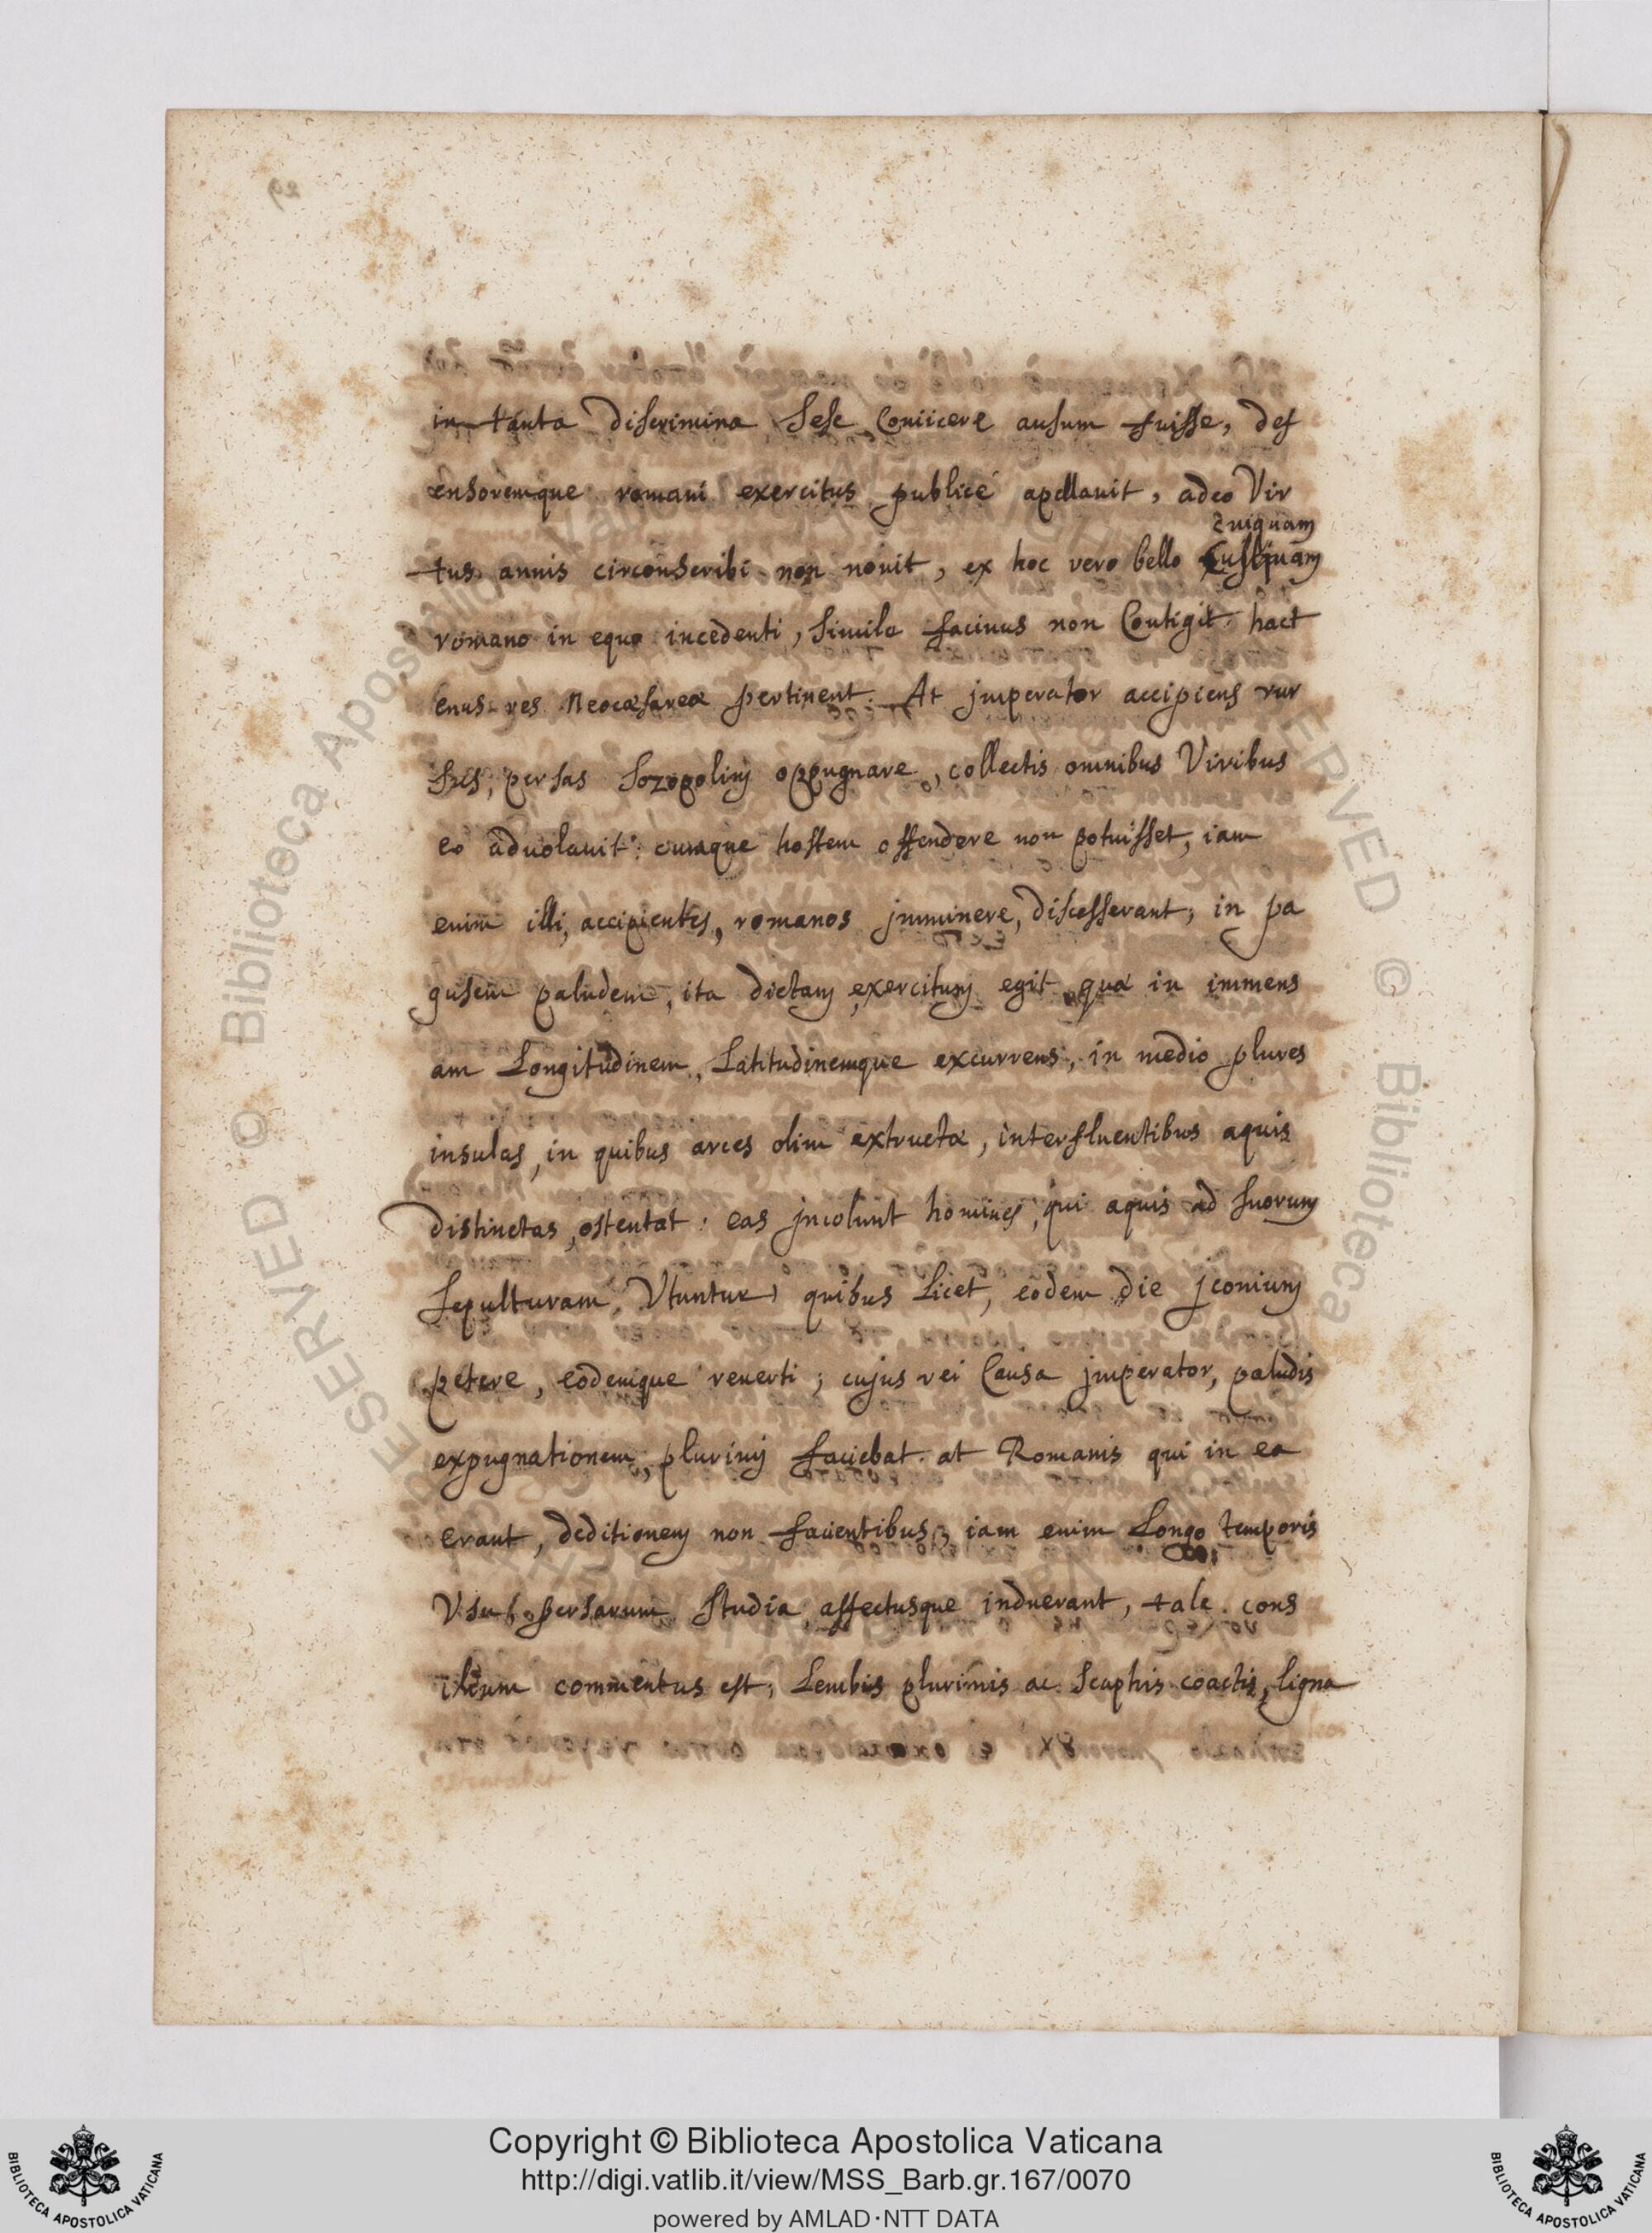 in tanta discrimina sese coniicere ausum fuisse, def
ensoremque romani exercitus publicé apellauit, adeo Vir
cuiquam
tus annis circonscribi non nouit, ex hoc vero bello
romano in equo incedenti, simile facinus non Contigit. hact
enus res neocæsareæ pertinent. At jmperator accipiens rur
sus, persas sozopolim oppugnare, collectis omnibus Viribus
eo aduolauit: cumque hostem offendere non potuisset, iam
enim illi, accipientes, romanos jmminere, discesserant; in pa
gusem paludem, ita dictam exercitum egit quæ in immens
am Longitudinem, Latitudinemque excurrens, in medio plures
insulas, in quibus arces olim extructæ, interfluentibus aquis
distinctas, ostentat: eas jncolunt homines, qui aquis ad suorum
sepulturam, Vtuntur quibus Licet, eodem die jconium
petere, eodemque reuerti; cujus rei Causa jmperator, paludis
expugnationem, plurimj faciebat. at Romanis qui in ea
erant, deditionem non facientibus, iam enim Longo temporis
Vsu persarum studia, affectusque induerant, tale cons
ilium commentus est; Lembis plurimis ac scaphis coactis, ligna
Copyright © Biblioteca Apostolica Vaticana
http://digi.vatlib.it/view/MSS_Barb.gr.167/0070
powered by AMLAD·NTT DATA